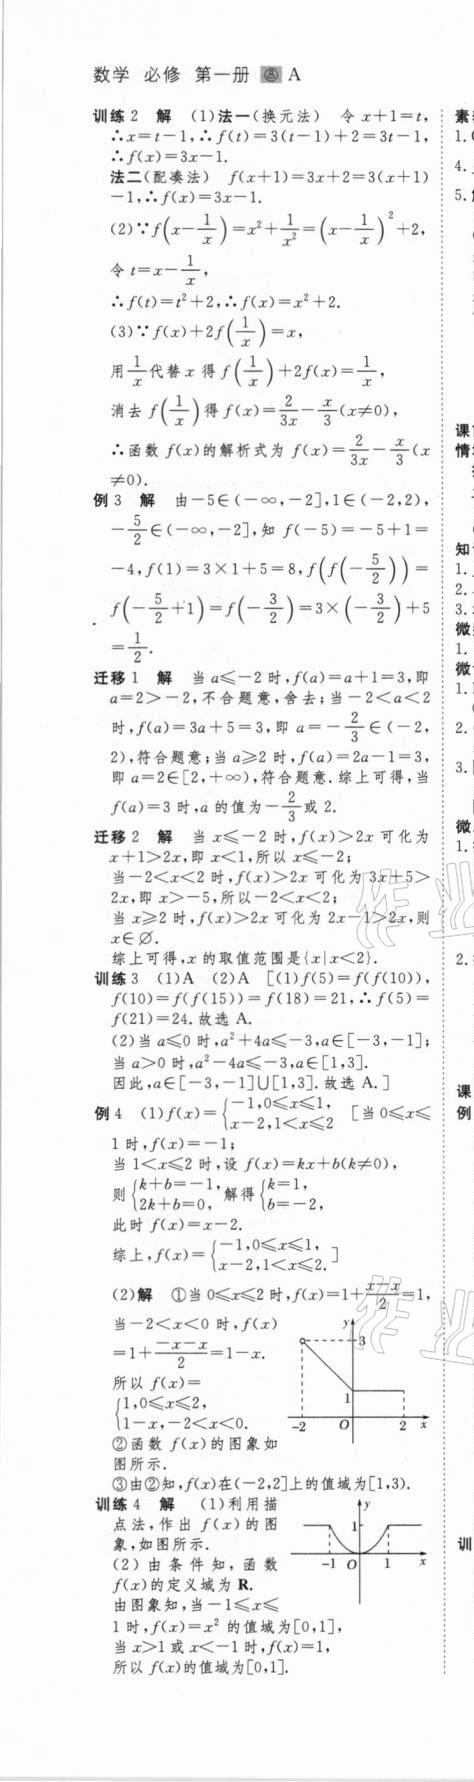 数学 必修 第一册 Ⓐ A
训练2 解 (1)法一(换元法) 令 x+1=t,
∴x=t-1,∴f(t)=3(t-1)+2=3t-1,
∴f(x)=3x-1.
法二(配凑法) f(x+1)=3x+2=3(x+1)
-1,∴f(x)=3x-1.
(2)∵f(x-1/x)=x²+1/x²=(x-1/x)²+2,
令 t=x-1/x,
∴f(t)=t²+2,∴f(x)=x²+2.
(3)∵f(x)+2f(1/x)=x,
用1/x代替 x 得 f(1/x)+2f(x)=1/x,
消去 f(1/x)得 f(x)=2/3x-x/3(x≠0),
∴函数 f(x)的解析式为 f(x)=2/3x-x/3(x
≠0).
例3 解 由-5∈(-∞,-2],1∈(-2,2),
-5/2∈(-∞,-2],知 f(-5)=-5+1=
-4,f(1)=3×1+5=8,f(f(-5/2))=
f(-5/2+1)=f(-3/2)=3×(-3/2)+5
=1/2.
迁移1 解 当 a≤-2 时,f(a)=a+1=3,即
a=2>-2,不合题意,舍去;当-2<a<2
时,f(a)=3a+5=3,即 a=-2/3∈(-2,
2),符合题意;当 a≥2 时,f(a)=2a-1=3,
即 a=2∈[2,+∞),符合题意.综上可得,当
f(a)=3 时,a 的值为-2/3或 2.
迁移2 解 当 x≤-2 时,f(x)>2x 可化为
x+1>2x,即 x<1,所以 x≤-2;
当-2<x<2 时,f(x)>2x 可化为 3x+5>
2x,即 x>-5,所以-2<x<2;
当 x≥2 时,f(x)>2x 可化为 2x-1>2x,则
x∈∅.
综上可得,x 的取值范围是{x|x<2}.
训练3 (1)A (2)A [(1)f(5)=f(f(10)),
f(10)=f(f(15))=f(18)=21,∴f(5)=
f(21)=24.故选 A.
(2)当 a≤0 时,a²+4a≤-3,a∈[-3,-1];
当 a>0 时,a²-4a≤-3,a∈[1,3].
因此,a∈[-3,-1]∪[1,3].故选 A.]
例4 (1)f(x)={-1,0≤x≤1, x-2,1<x≤2 [当 0≤x≤
1 时,f(x)=-1;
当 1<x≤2 时,设 f(x)=kx+b(k≠0),
则{k+b=-1, 2k+b=0, 解得{k=1, b=-2,
此时 f(x)=x-2.
综上,f(x)={-1,0≤x≤1, x-2,1<x≤2. ]
(2)解 ①当 0≤x≤2 时,f(x)=1+(x-x)/2=1,
当-2<x<0 时,f(x)
=1+(-x-x)/2=1-x.
所以 f(x)=
{1,0≤x≤2,
1-x,-2<x<0.
②函数 f(x)的图象如
图所示.
y
3
1
-2 O 2 x
③由②知,f(x)在(-2,2]上的值域为[1,3).
训练4 解 (1)利用描
点法,作出 f(x)的图
象,如图所示.
(2)由条件知,函数
f(x)的定义域为 R.
由图象知,当-1≤x≤
y
1
-1 O 1 x
1 时,f(x)=x² 的值域为[0,1],
当 x>1 或 x<-1 时,f(x)=1,
所以 f(x)的值域为[0,1].
作业
作业
1.
4.
5.
课
情
知
1.
2.
3.
微
1.
微
1.
2.
3.
微
1.
2.
课
例
训